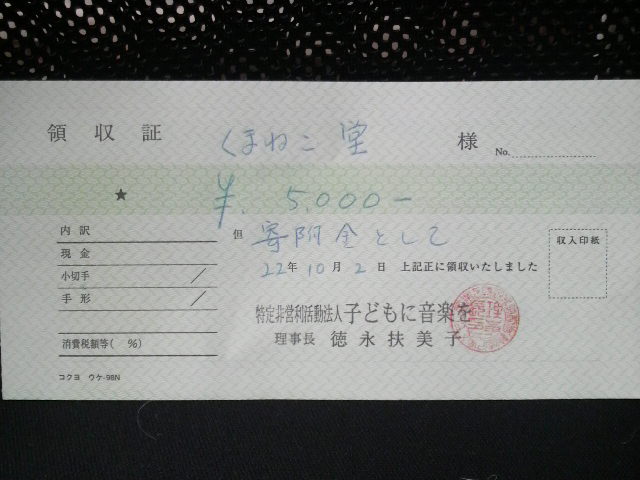 領収証 くまねこ堂 様 No.
★ ¥. 5,000-
但 寄附金として
22年10月2日 上記正に領収いたしました
内訳
現金
小切手 /
手形 /
消費税額等( %)
収入印紙
特定非営利活動法人子どもに音楽を
理事長 徳永扶美子
コクヨ ウケ-98N